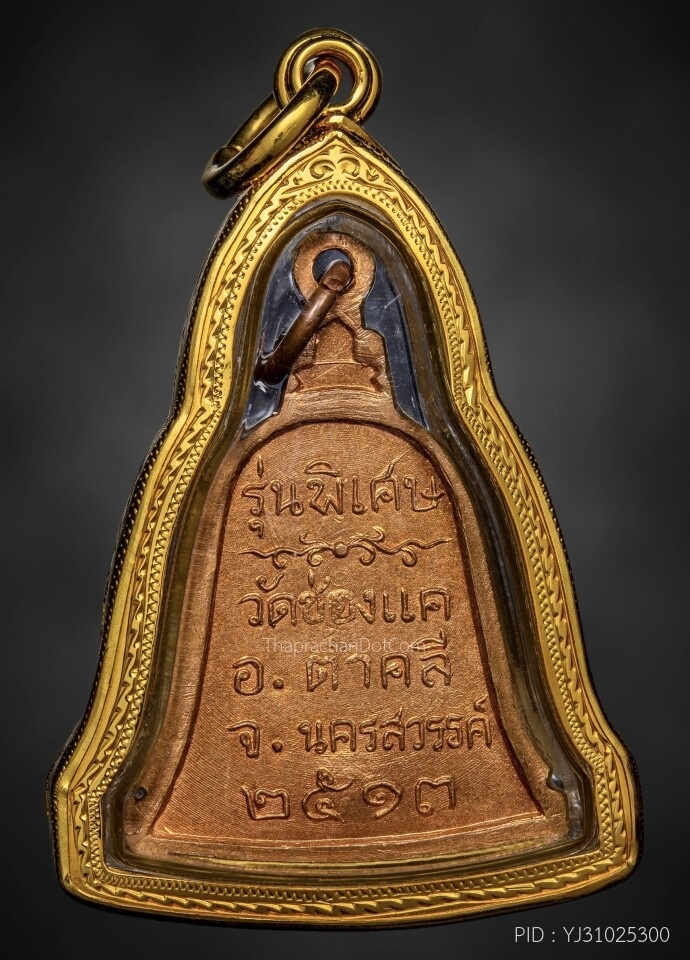 รุ่นพิเศษ
วัดช่องแค
ThaprachanDotCom
อ. ตาคลี
จ. นครสวรรค์
๒๕๑๓
PID : YJ31025300